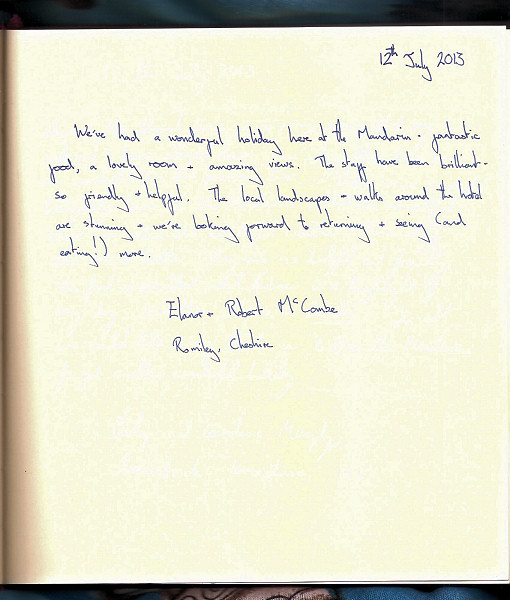 12th July 2013
We've had a wonderful holiday here at the Mandarin - fantastic
food, a lovely room + amazing views. The staff have been brilliant -
so friendly + helpful. The local landscapes + walks around the hotel
are stunning + we're looking forward to returning + seeing (and
eating!) more.
Elanor + Robert McCombe
Romiley, Cheshire